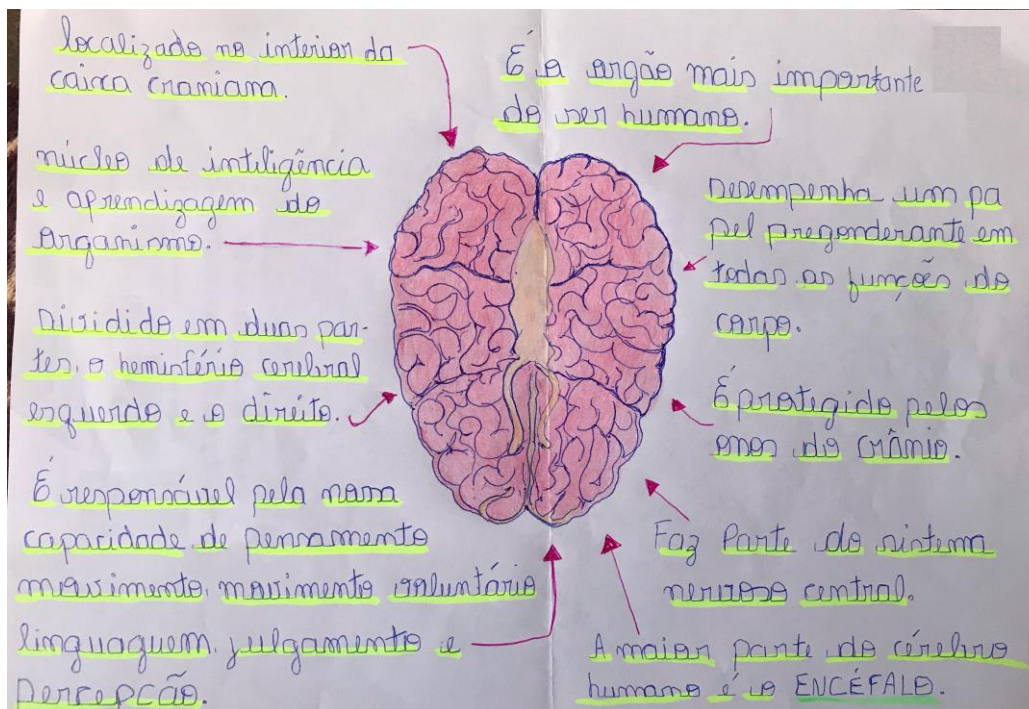 localizado no interior da
caixa craniana.
núcleo de inteligência
e aprendizagem do
organismo.
Dividido em duas par-
tes, o hemisfério cerebral
esquerdo e o direito.
É responsável pela nossa
capacidade de pensamento
movimento, movimento voluntário
linguaguem, julgamento e
Percepção.
É o orgão mais importante
do ser humano.
Desempenha um pa
pel pregonderante em
todas as funções do
corpo.
É protegido pelos
ossos do crânio.
Faz Parte do sistema
nervoso central.
A maior parte do cérebro
humano é o ENCÉFALO.